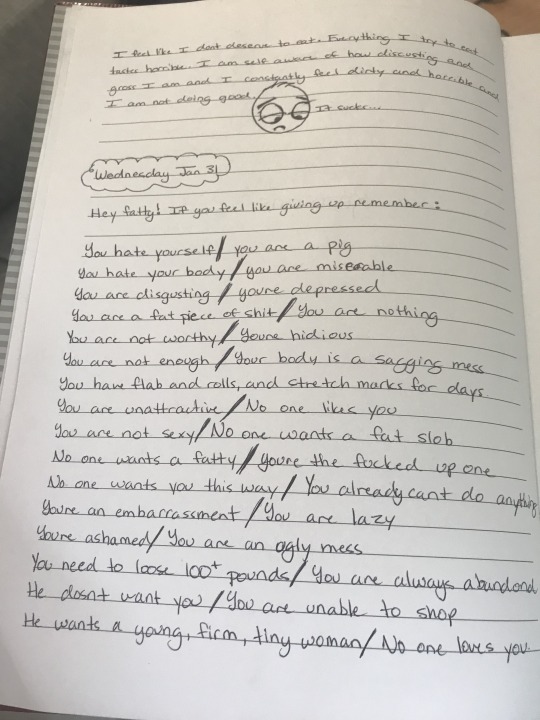 I feel like I dont deserve to eat. Everything I try to eat
tastes horrible. I am self aware of how discusting and
gross I am and I constantly feel dirty and horrible and
I am not doing good.
It sucks...
Wednesday Jan 31
Hey fatty! If you feel like giving up remember:
You hate yourself/ you are a pig
You hate your body/ you are miserable
You are disgusting / youre depressed
You are a fat piece of shit/ You are nothing
You are not worthy/ Youre hidious
You are not enough/ Your body is a sagging mess
You have flab and rolls, and stretch marks for days
You are unattractive/ No one likes you
You are not sexy/ No one wants a fat slob
No one wants a fatty/ youre the fucked up one
No one wants you this way/ You already cant do anything
Youre an embarrassment/ You are lazy
Youre ashamed/ You are an ugly mess
You need to loose 100+ pounds/ You are always abundond
He dosnt want you/ You are unable to shop
He wants a young, firm, tiny woman/ No one loves you.